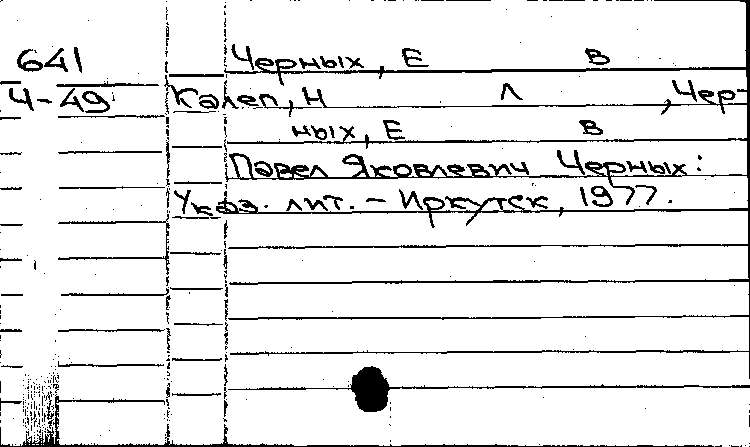 641 Черных, Е В
Ч-49 Калеп, Н Л , Чер-
ных, Е В
Павел Яковлевич Черных:
Указ. лит. - Иркутск, 1977.